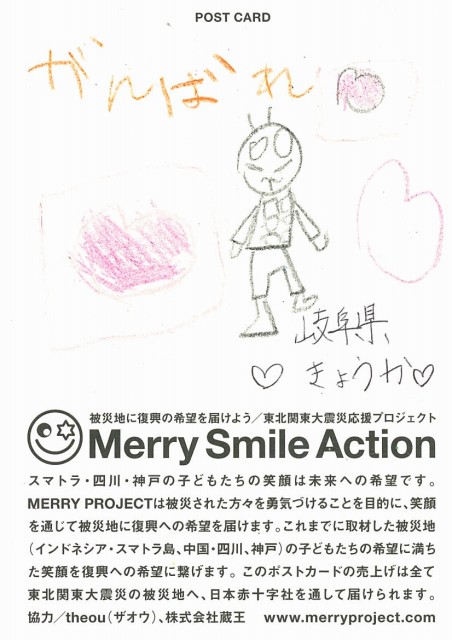 POST CARD
がんばれ
岐阜県
♡ きょうか♡
被災地に復興の希望を届けよう／東北関東大震災応援プロジェクト
Merry Smile Action
スマトラ・四川・神戸の子どもたちの笑顔は未来への希望です。
MERRY PROJECTは被災された方々を勇気づけることを目的に、笑顔
を通じて被災地に復興への希望を届けます。これまでに取材した被災地
（インドネシア・スマトラ島、中国・四川、神戸）の子どもたちの希望に満ち
た笑顔を復興への希望に繋げます。このポストカードの売上げは全て
東北関東大震災の被災地へ、日本赤十字社を通して届けられます。
協力／theou（ザオウ）、株式会社蔵王 www.merryproject.com